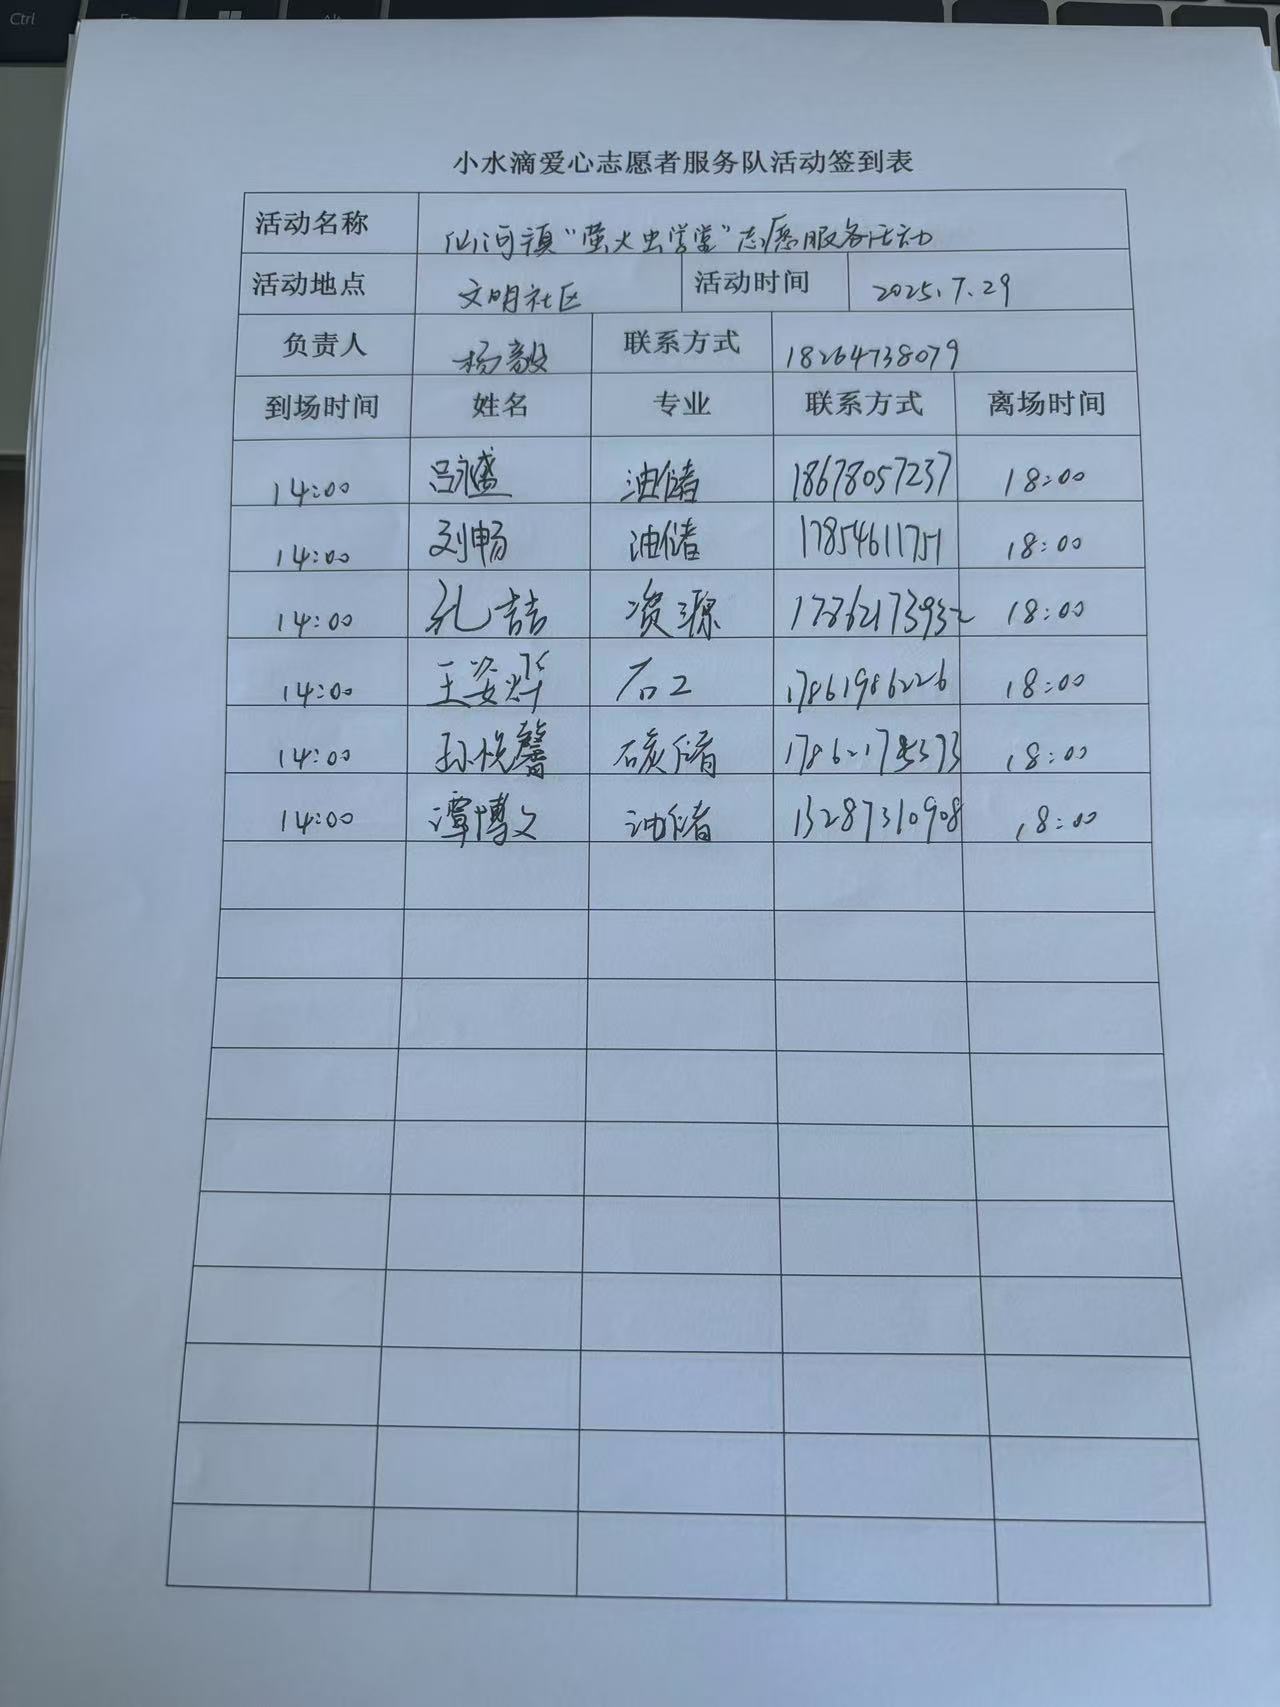 Ctrl
小水滴爱心志愿者服务队活动签到表
活动名称 仙河镇“萤火虫学堂”志愿服务活动
活动地点 文明社区 活动时间 2025.7.29
负责人 杨毅 联系方式 18264738079
到场时间 姓名 专业 联系方式 离场时间
14:00 吕永盛 油储 18678057237 18:00
14:00 刘畅 油储 17854611751 18:00
14:00 孔喆 资源 17862173932 18:00
14:00 王姿烨 石工 17861986226 18:00
14:00 孙悦馨 碳储 18:00
14:00 谭博文 油储 13287310908 18:00